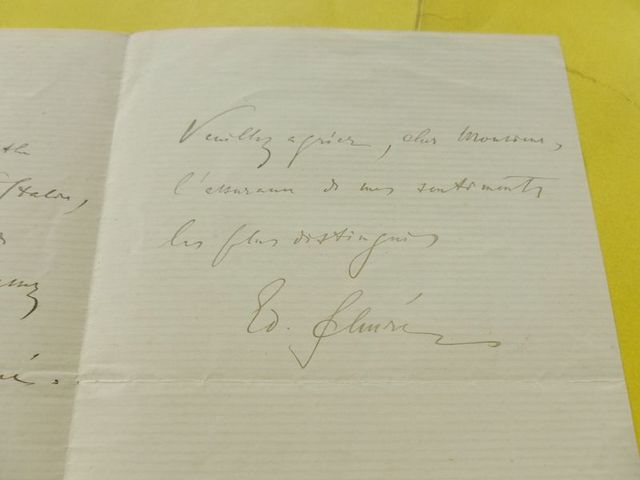 Veuillez agréer, cher Monsieur,
l'assurance de mes sentiments
les plus distingués
Ed. Schuré